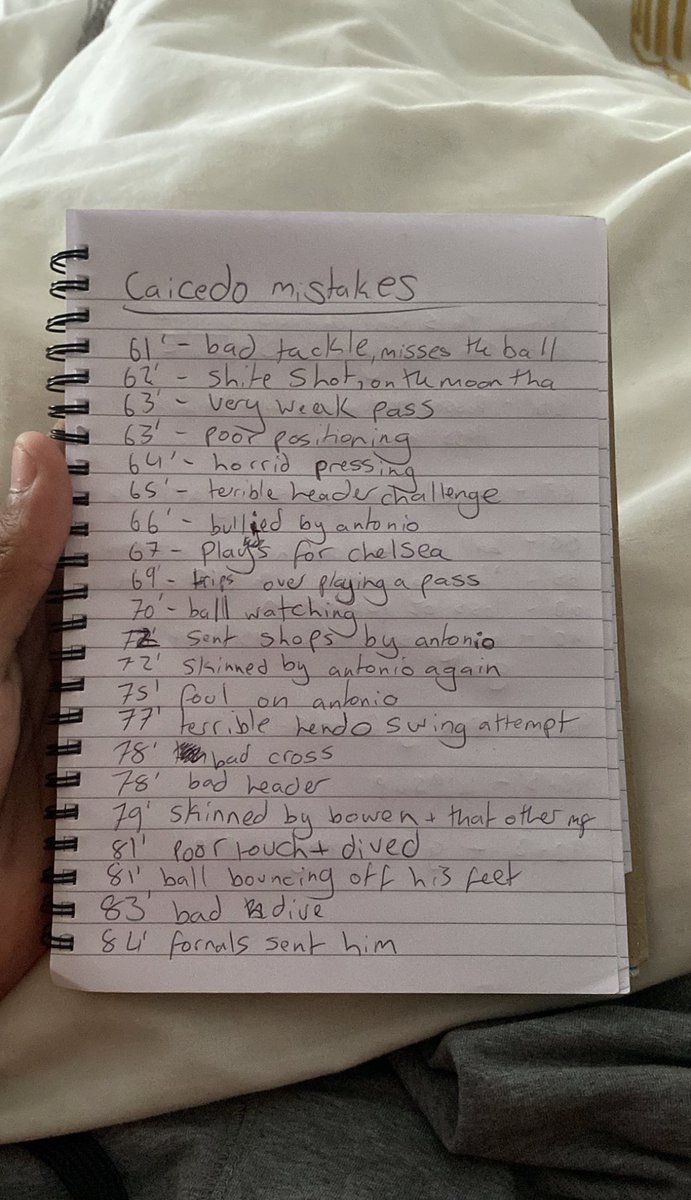 Caicedo mistakes
61' - bad tackle, misses the ball
62' - shite shot, on the moon tha
63' - very weak pass
63' - poor positioning
64' - horrid pressing
65' - terrible header challenge
66' - bullied by antonio
67 - plays for chelsea
69' - trips over playing a pass
70' - ball watching
72' sent shops by antonio
72' skinned by antonio again
75' foul on antonio
77' terrible hendo swing attempt
78' bad cross
78' bad header
79' skinned by bowen + that other mf
81' poor touch + dived
81' ball bouncing off his feet
83' bad dive
84' fornals sent him